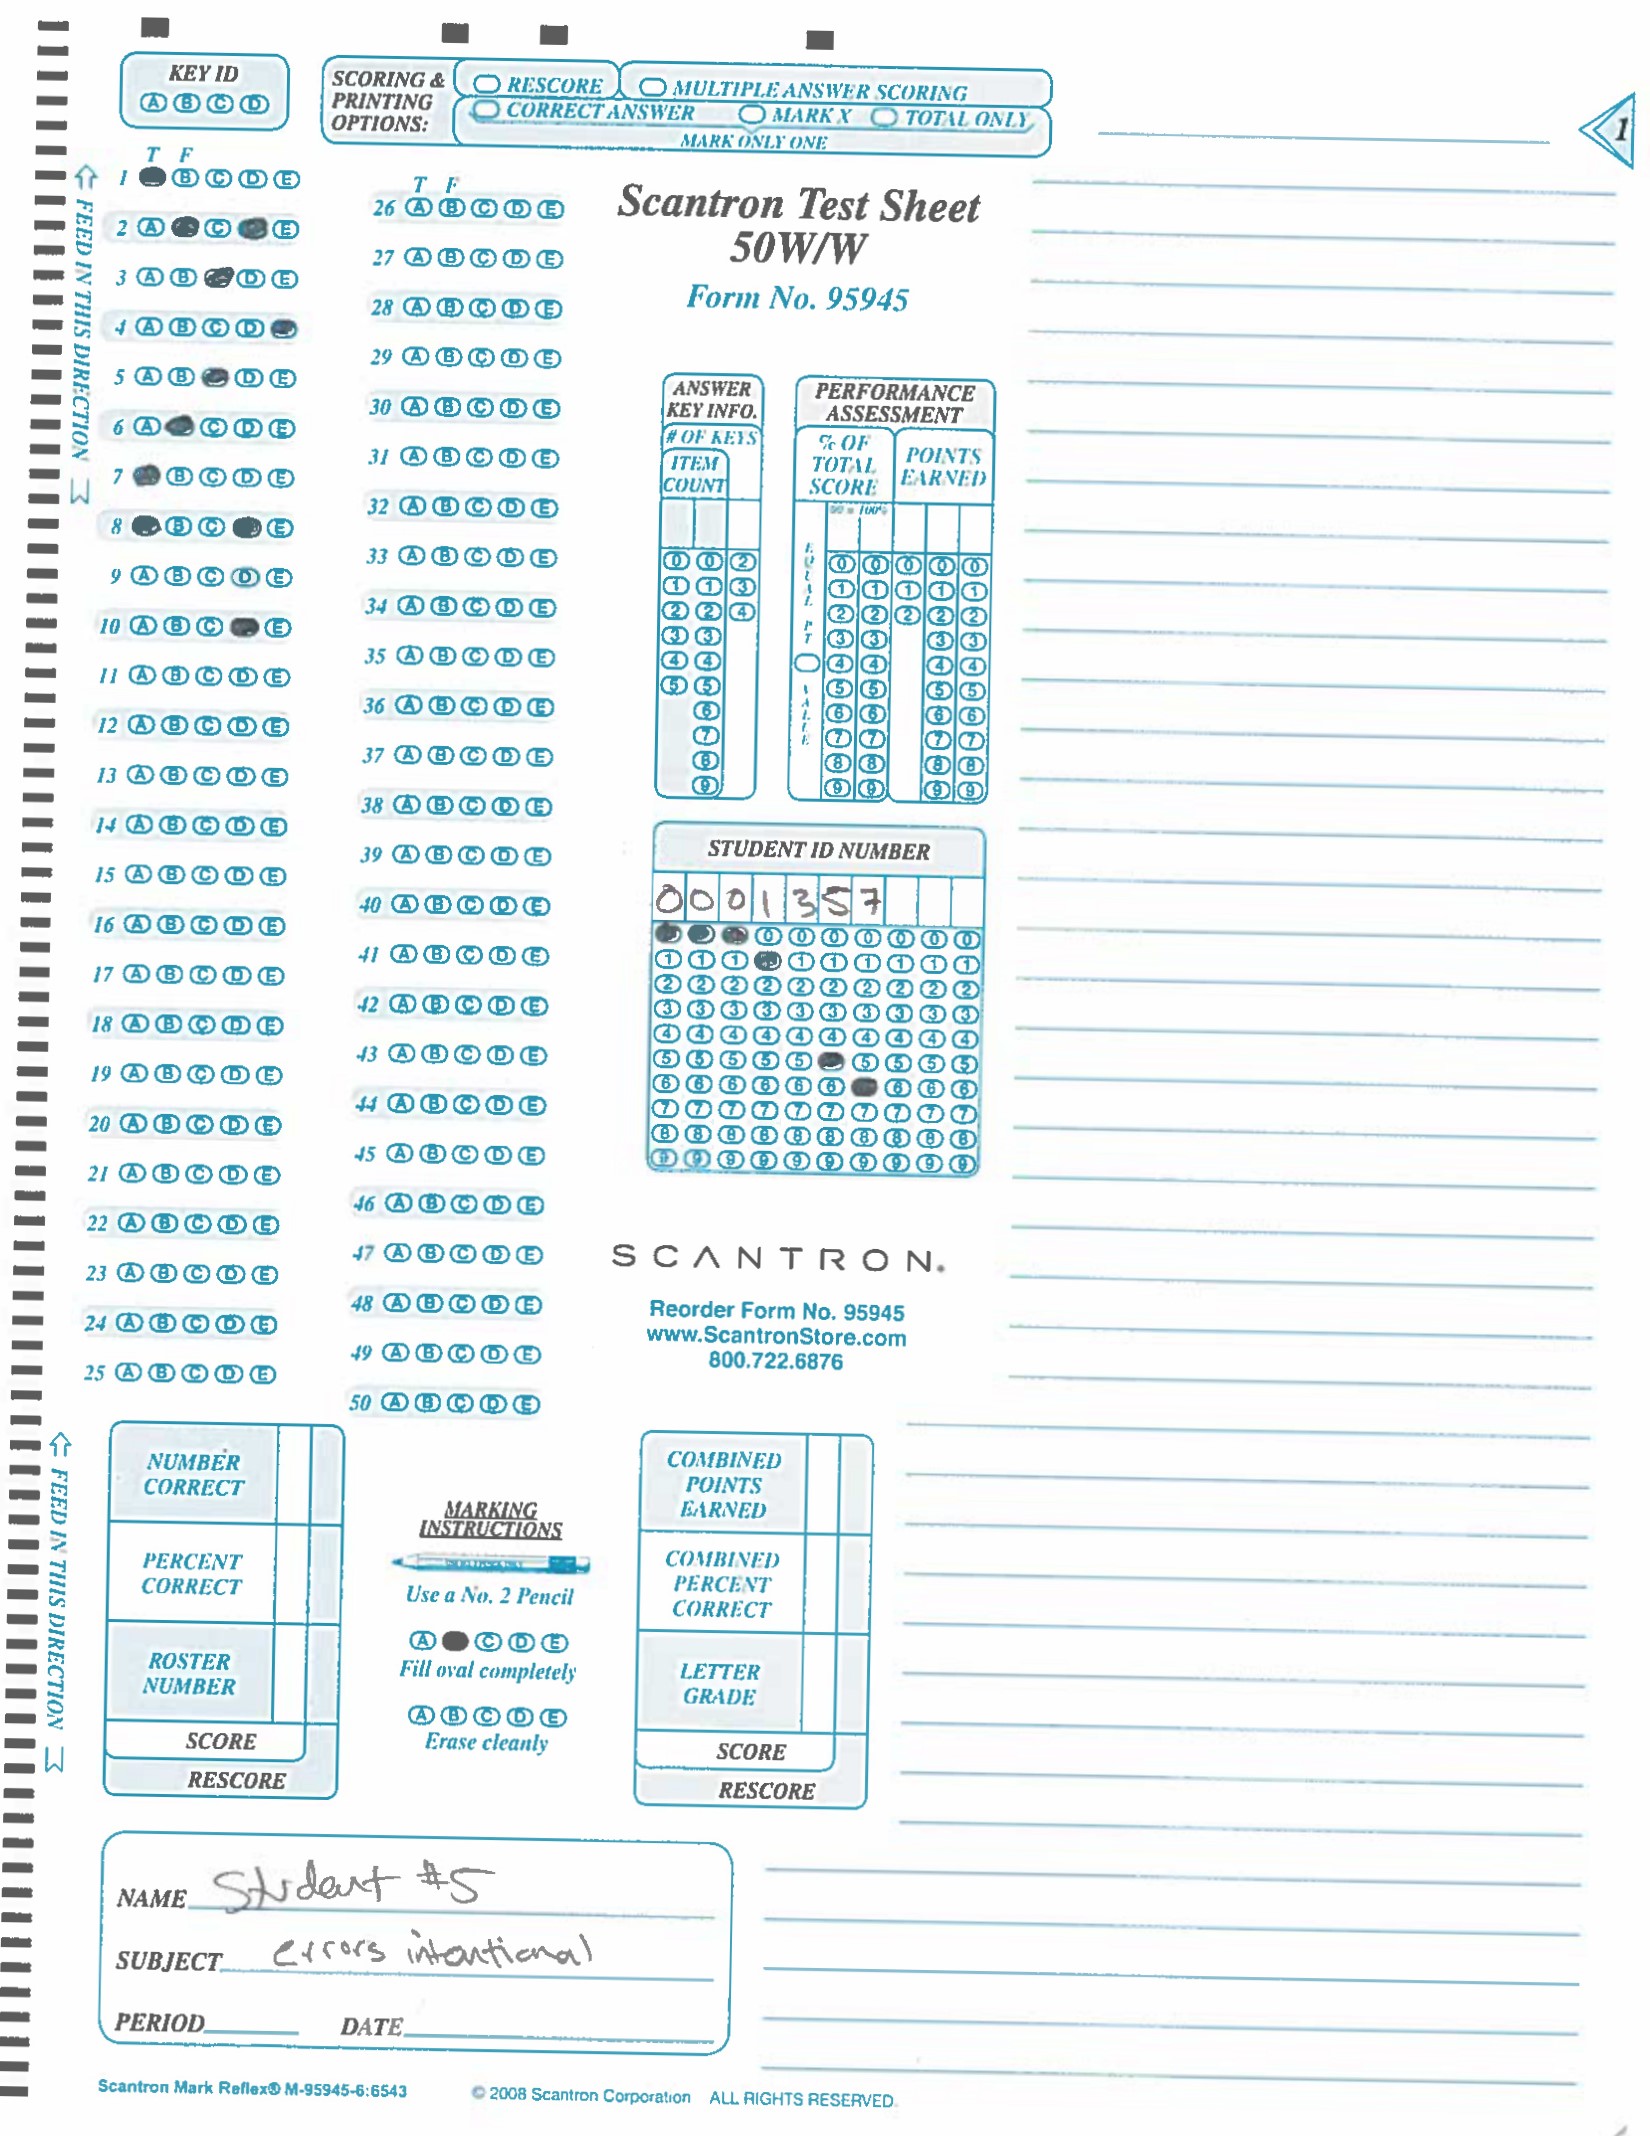 KEY ID
A B C D
SCORING & PRINTING OPTIONS:
RESCORE
MULTIPLE ANSWER SCORING
CORRECT ANSWER
MARK X
TOTAL ONLY
MARK ONLY ONE
1
FEED IN THIS DIRECTION
T F
1 B C D E
2 A C E
3 A B D E
4 A B C D
5 A B D E
6 A C D E
7 B C D E
8 B C E
9 A B C D E
10 A B C E
11 A B C D E
12 A B C D E
13 A B C D E
14 A B C D E
15 A B C D E
16 A B C D E
17 A B C D E
18 A B C D E
19 A B C D E
20 A B C D E
21 A B C D E
22 A B C D E
23 A B C D E
24 A B C D E
25 A B C D E
T F
26 A B C D E
27 A B C D E
28 A B C D E
29 A B C D E
30 A B C D E
31 A B C D E
32 A B C D E
33 A B C D E
34 A B C D E
35 A B C D E
36 A B C D E
37 A B C D E
38 A B C D E
39 A B C D E
40 A B C D E
41 A B C D E
42 A B C D E
43 A B C D E
44 A B C D E
45 A B C D E
46 A B C D E
47 A B C D E
48 A B C D E
49 A B C D E
50 A B C D E
Scantron Test Sheet
50W/W
Form No. 95945
ANSWER
KEY INFO.
# OF KEYS
ITEM
COUNT
0 0 2
1 1 3
2 2 4
3 3
4 4
5 5
6
7
8
9
PERFORMANCE
ASSESSMENT
% OF
TOTAL
SCORE
POINTS
EARNED
00 = 100%
EQUAL PT VALUE
0 0 0 0 0
1 1 1 1 1
2 2 2 2 2
3 3 3 3
4 4 4 4
5 5 5 5
6 6 6 6
7 7 7 7
8 8 8 8
9 9 9 9
STUDENT ID NUMBER
0 0 0 1 3 5 7
0 0 0 0 0 0 0
1 1 1 1 1 1 1 1 1
2 2 2 2 2 2 2 2 2 2
3 3 3 3 3 3 3 3 3 3
4 4 4 4 4 4 4 4 4 4
5 5 5 5 5 5 5 5 5
6 6 6 6 6 6 6 6 6
7 7 7 7 7 7 7 7 7 7
8 8 8 8 8 8 8 8 8 8
9 9 9 9 9 9 9 9 9 9
SCANTRON.
Reorder Form No. 95945
www.ScantronStore.com
800.722.6876
FEED IN THIS DIRECTION
NUMBER
CORRECT
PERCENT
CORRECT
ROSTER
NUMBER
SCORE
RESCORE
MARKING
INSTRUCTIONS
Use a No. 2 Pencil
A C D E
Fill oval completely
A B C D E
Erase cleanly
COMBINED
POINTS
EARNED
COMBINED
PERCENT
CORRECT
LETTER
GRADE
SCORE
RESCORE
NAME Student #5
SUBJECT errors intentional
PERIOD DATE
Scantron Mark Reflex® M-95945-6:6543
© 2008 Scantron Corporation ALL RIGHTS RESERVED.